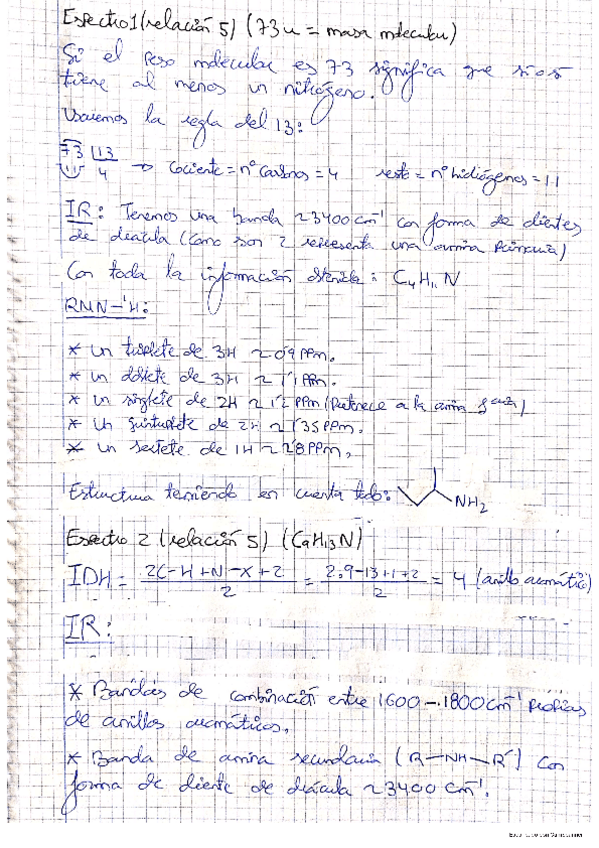 Espectro 1 (relación 5) (73u = masa molecular)
Si el peso molecular es 73 significa que sí o sí
tiene al menos un nitrógeno.
Usaremos la regla del 13:
73 | 13
4 → Cociente = nº carbonos = 4 resto = nº hidrógenos = 11
IR: Tenemos una banda ~3400 cm⁻¹ con forma de dientes
de drácula (como son 2 representa una amina primaria)
Con toda la información obtenida: C₄H₁₁N
RMN-¹H:
* un triplete de 3H ~ 0'9 ppm.
* un doblete de 3H ~ 1'1 ppm.
* un singlete de 2H ~ 1'2 ppm (Pertenece a la amina 1ªria)
* Un quintuplete de 2H ~ 1'35 ppm.
* un sextete de 1H ~ 2'8 ppm.
Estructura teniendo en cuenta todo: NH₂
Espectro 2 (relación 5) (C₉H₁₃N)
IDH = 2C-H+N-X+2 / 2 = 2·9-13+1+2 / 2 = 4 (anillo aromático)
IR:
* Bandas de combinación entre 1600-1800 cm⁻¹ propias
de anillos aromáticos.
* Banda de amina secundaria (R-NH-R') con
forma de diente de drácula ~3400 cm⁻¹.